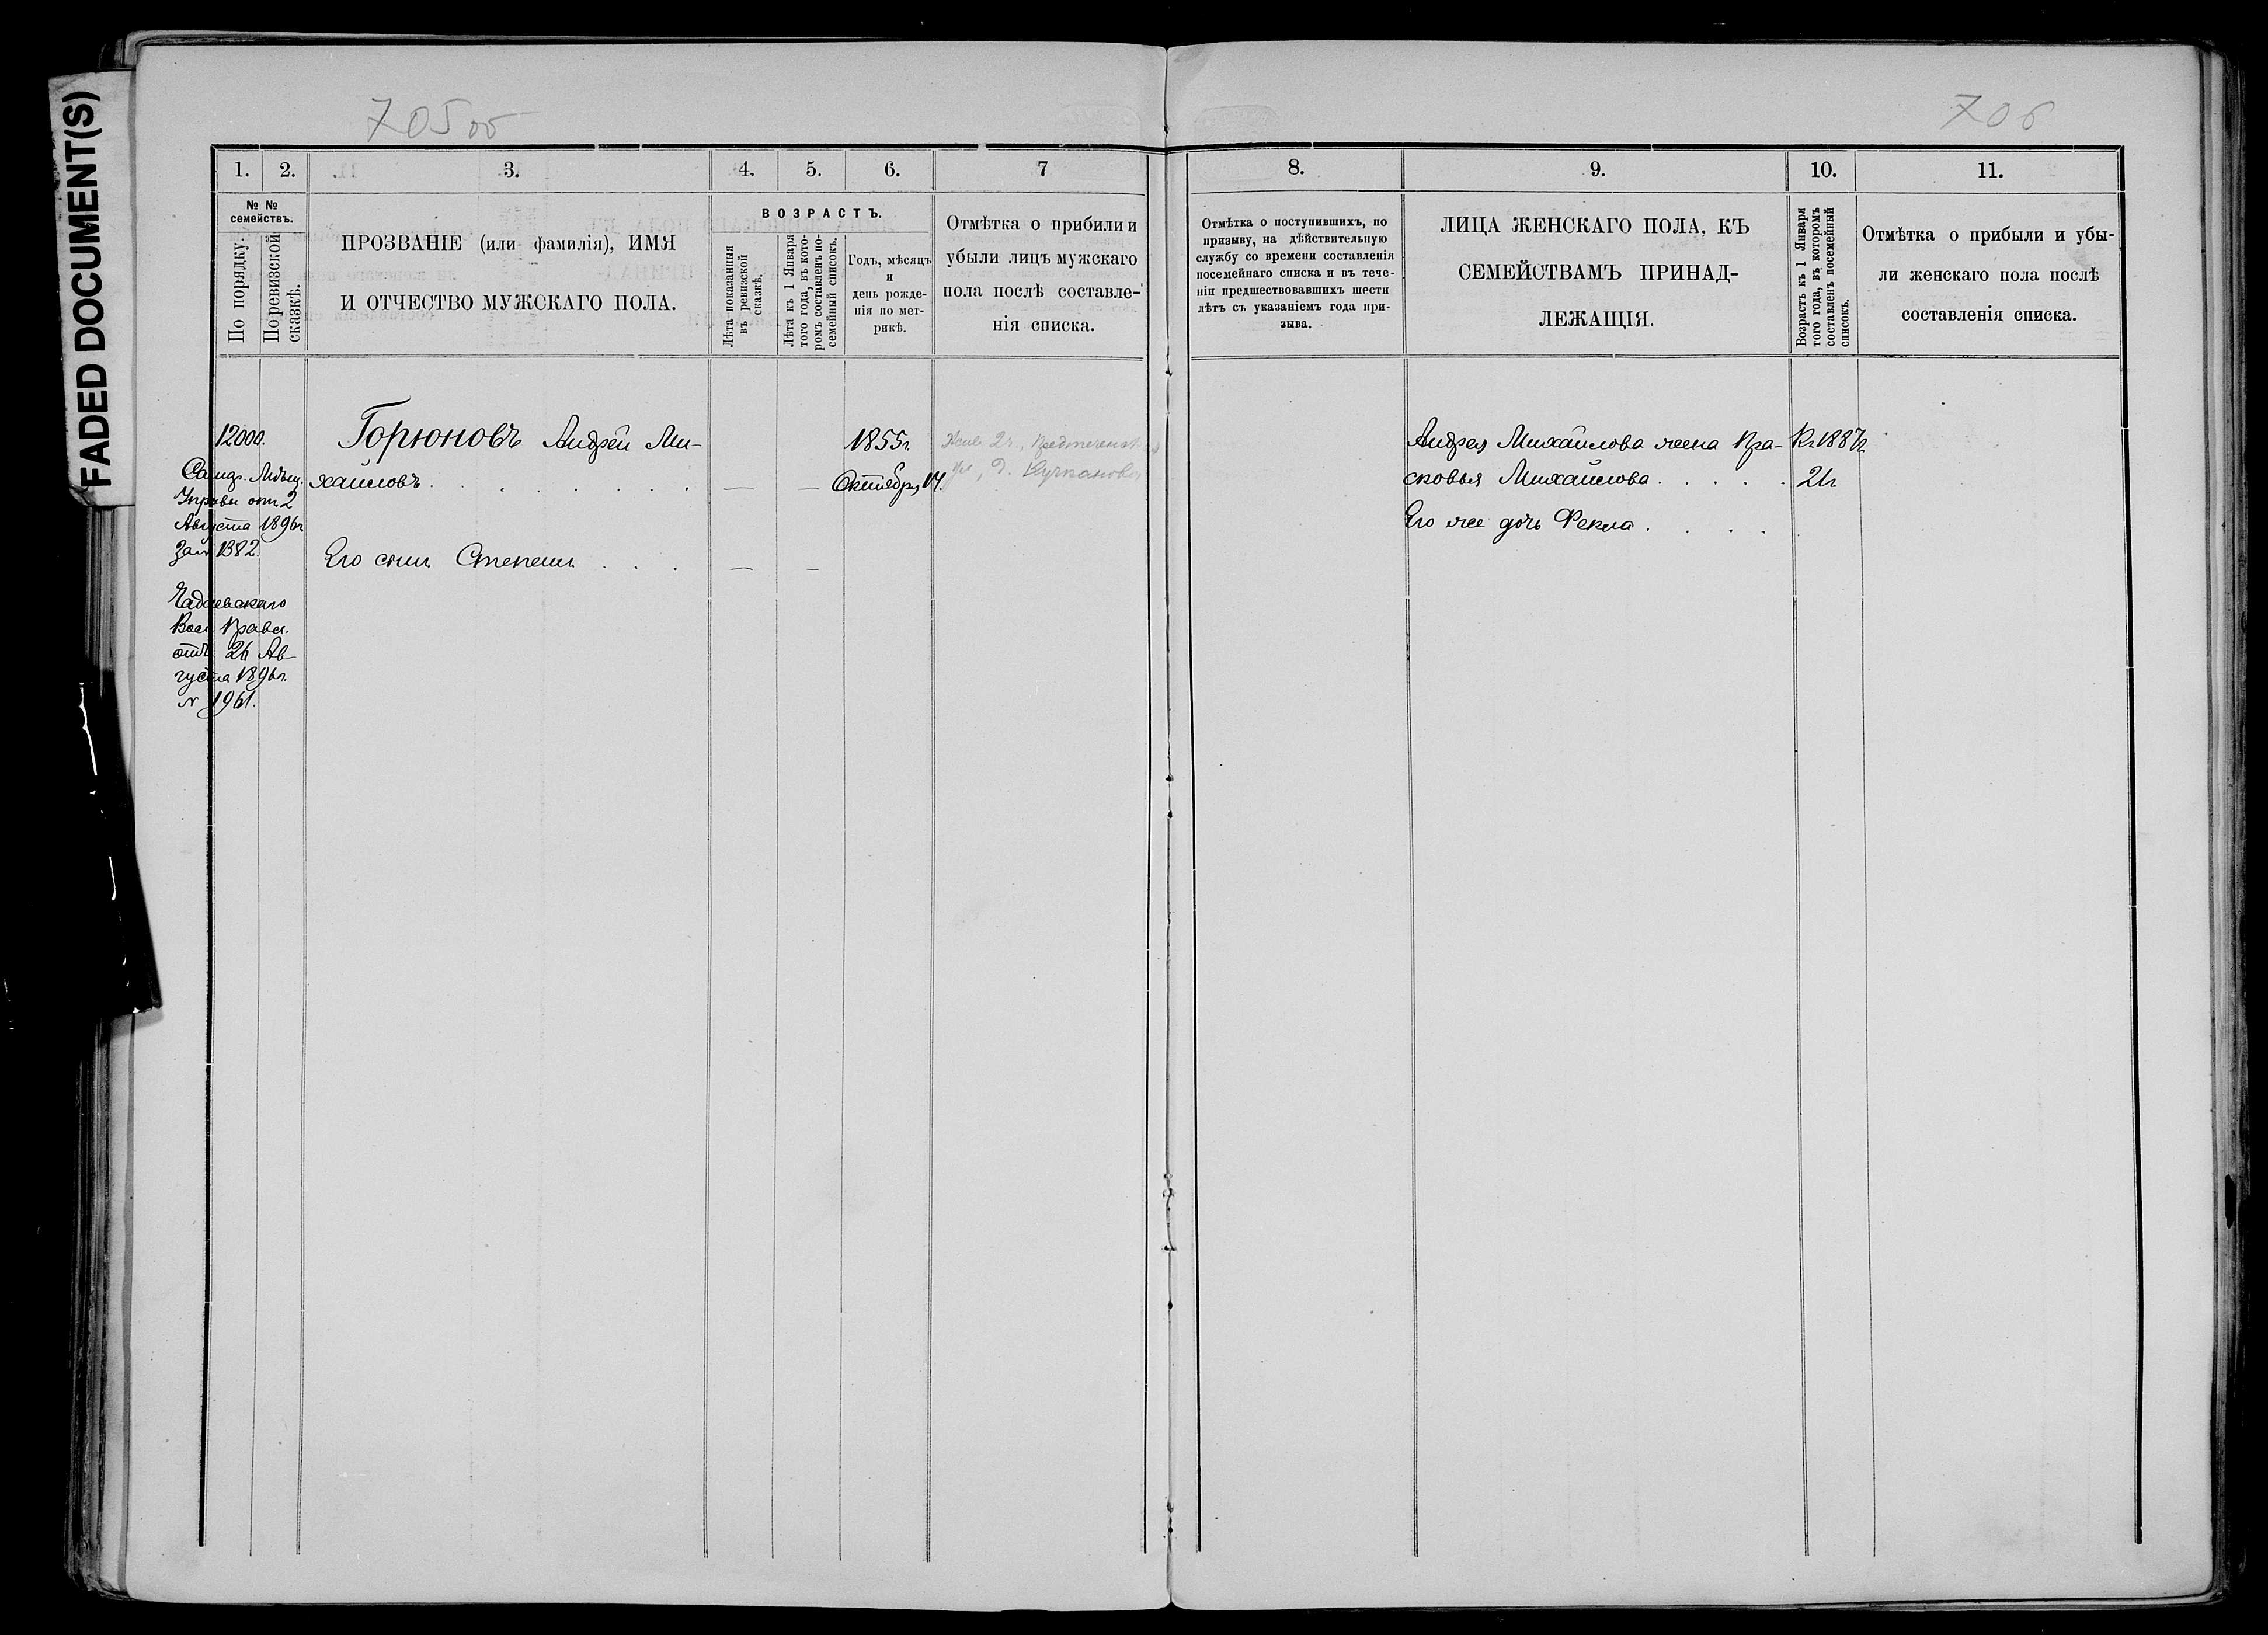 FADED DOCUMENT(S)
705 об
706
1. 2. 3. 4. 5. 6. 7
№ №
семействъ.
По порядку.
По ревизской
сказкѣ.
ПРОЗВАНІЕ (или фамилія), ИМЯ
И ОТЧЕСТВО МУЖСКАГО ПОЛА.
ВОЗРАСТЪ.
Лѣта показанныя
въ ревизской
сказкѣ.
Лѣта къ 1 Января
того года, въ кото-
ромъ составленъ по-
семейный списокъ.
Годъ, мѣсяцъ
и
день рожде-
нія по мет-
рикѣ.
Отмѣтка о прибыли и
убыли лицъ мужскаго
пола послѣ составле-
нія списка.
12000.
Горюновъ Андрей Ми-
хайловъ . . . . . . . — —
1855г.
Октября 14.
Управы отъ 2
Августа 1896г
за № 1382.
Его сынъ Степанъ . . . — —
Вол. Правл.
отъ 26 Ав-
густа 1896г.
№ 1961.
8. 9. 10. 11.
Отмѣтка о поступившихъ, по
призыву, на дѣйствительную
службу со времени составленія
посемейнаго списка и въ тече-
ніи предшествовавшихъ шести
лѣтъ съ указаніемъ года при-
зыва.
ЛИЦА ЖЕНСКАГО ПОЛА, КЪ
СЕМЕЙСТВАМЪ ПРИНАД-
ЛЕЖАЩІЯ.
Возрастъ къ 1 Января
того года, въ которомъ
составленъ посемейный
списокъ.
Отмѣтка о прибыли и убы-
ли женскаго пола послѣ
составленія списка.
Андрея Михайлова жена Пра-
сковья Михайлова . . . . .
Его же дочь Фекла . . . .